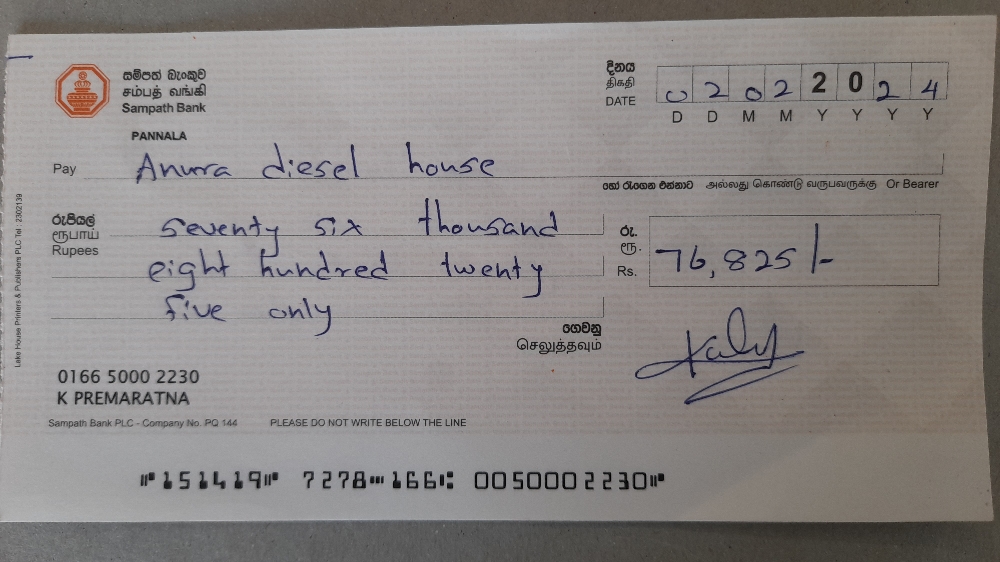 සම්පත් බැංකුව
சம்பத் வங்கி
Sampath Bank
PANNALA
දිනය
திகதி
DATE
0 2 0 2 2 0 2 4
D D M M Y Y Y Y
Pay Anura diesel house
හෝ රැගෙන එන්නාට அல்லது கொண்டு வருபவருக்கு Or Bearer
රුපියල්
ரூபாய்
Rupees
seventy six thousand
eight hundred twenty
five only
රු.
ரூ.
Rs.
76,825/-
ගෙවනු
செலுத்தவும்
0166 5000 2230
K PREMARATNA
Sampath Bank PLC - Company No. PQ 144 PLEASE DO NOT WRITE BELOW THE LINE
⑈151419⑈ 7278⑉166⑆ 0050002230⑈
Lake House Printers & Publishers PLC Tel : 2302139